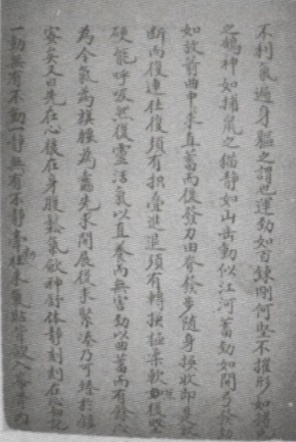 不利氣遍身軀之謂也運動如百鍊剛何堅不摧形如搏兔
之鶻神如捕鼠之貓靜如山岳動似江河蓄勁如開弓發勁
如放箭曲中求直蓄而後發力由脊發步隨身換收即是放
斷而復連往復須有摺疊進退須有轉換極柔軟而後極堅
硬能呼吸然後靈活氣以直養而無害勁以曲蓄而有餘心
為令氣為旗腰為纛先求開展後求緊湊乃可臻於縝
密矣又曰先在心後在身腹鬆氣斂神舒體靜刻刻在心切記
一動無有不動一靜無有不靜牽動往來氣貼背斂入脊骨內